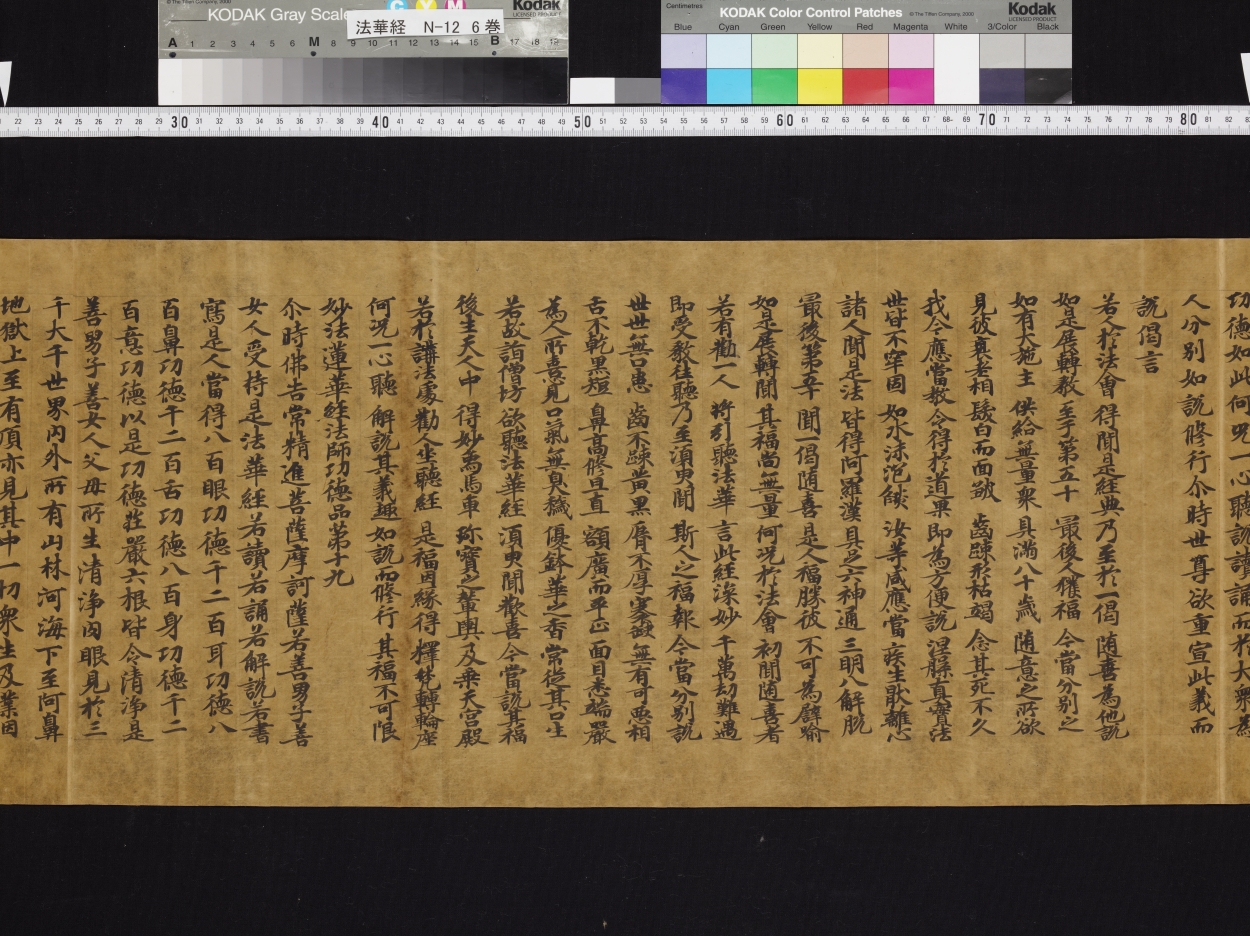 © The Tiffen Company, 2000
KODAK Gray Scale
Kodak
LICENSED PRODUCT
C Y M
法華経 N-12 6巻
A 1 2 3 4 5 6 M 8 9 10 11 12 13 14 15 B 17 18 19
Centimetres
KODAK Color Control Patches
© The Tiffen Company, 2000
Kodak
LICENSED PRODUCT
Blue Cyan Green Yellow Red Magenta White 3/Color Black
22 23 24 25 26 27 28 29 30 31 32 33 34 35 36 37 38 39 40 41 42 43 44 45 46 47 48 49 50 51 52 53 54 55 56 57 58 59 60 61 62 63 64 65 66 67 68 69 70 71 72 73 74 75 76 77 78 79 80 81 82
功德如此何況一心聽說讀誦而於大衆為
人分別如說修行尒時世尊欲重宣此義而
說偈言
若人於法會 得聞是經典 乃至於一偈 随喜為他說
如是展轉教 至于第五十 最後人獲福 今當分別之
如有大施主 供給無量衆 具滿八十歲 随意之所欲
見彼衰老相 髮白而面皺 齒踈形枯竭 念其死不久
我今應當教 令得於道果 即為方便說 涅槃真實法
世皆不牢固 如水沫泡焰 汝等咸應當 疾生猒離心
諸人聞是法 皆得阿羅漢 具足六神通 三明八解脫
最後第五十 聞一偈随喜 是人福勝彼 不可為譬喻
如是展轉聞 其福尚無量 何況於法會 初聞随喜者
若有勸一人 將引聽法華 言此經深妙 千萬劫難遇
即受教往聽 乃至須臾聞 斯人之福報 今當分別說
世世無口患 齒不踈黃黑 脣不厚褰缺 無有可惡相
舌不乾黑短 鼻高修且直 額廣而平正 面目悉端嚴
為人所憙見 口氣無臭穢 優鉢華之香 常從其口出
若故詣僧坊 欲聽法華經 須臾聞歡喜 今當說其福
後生天人中 得妙鳥馬車 珎寶之輦輿 及乗天宮殿
若於講法處 勸人坐聽經 是福因緣得 釋梵轉輪座
何況一心聽 解說其義趣 如說而修行 其福不可限
妙法蓮華經法師功德品第十九
尒時佛告常精進菩薩摩訶薩若善男子善
女人受持是法華經若讀若誦若解說若書
寫是人當得八百眼功德千二百耳功德八
百鼻功德千二百舌功德八百身功德千二
百意功德以是功德莊嚴六根皆令清淨是
善男子善女人父母所生清淨肉眼見於三
千大千世界內外所有山林河海下至阿鼻
地獄上至有頂亦見其中一切衆生及業因